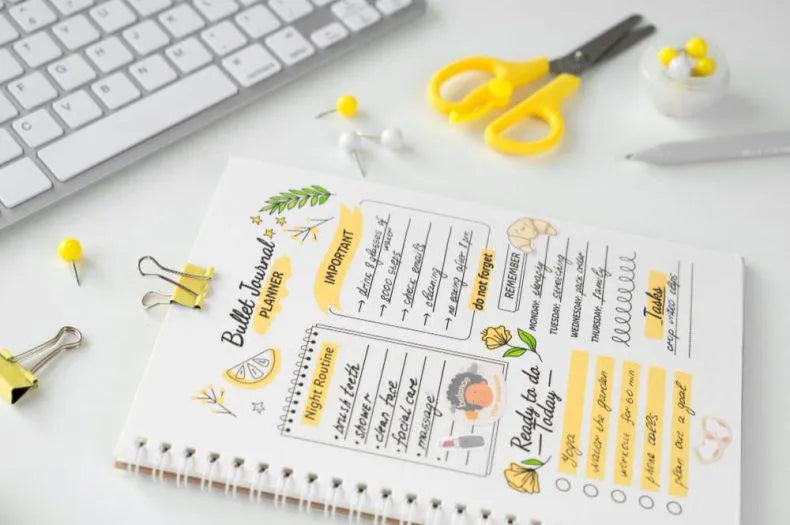 Bullet Journal
PLANNER
IMPORTANT
→ drink 8 glasses of
water
→ 8000 steps
→ check emails
→ cleaning
→ no eating after 8 pm
do not forget
Night Routine
• brush teeth
• shower
• clean face
• facial care
• massage
REMEMBER
MONDAY:
TUESDAY:
WEDNESDAY:
THURSDAY: family
Tasks
crop video clips
Ready to do
Today
Yoga
water the garden
workout for 60 min
phone calls
plan out a goal